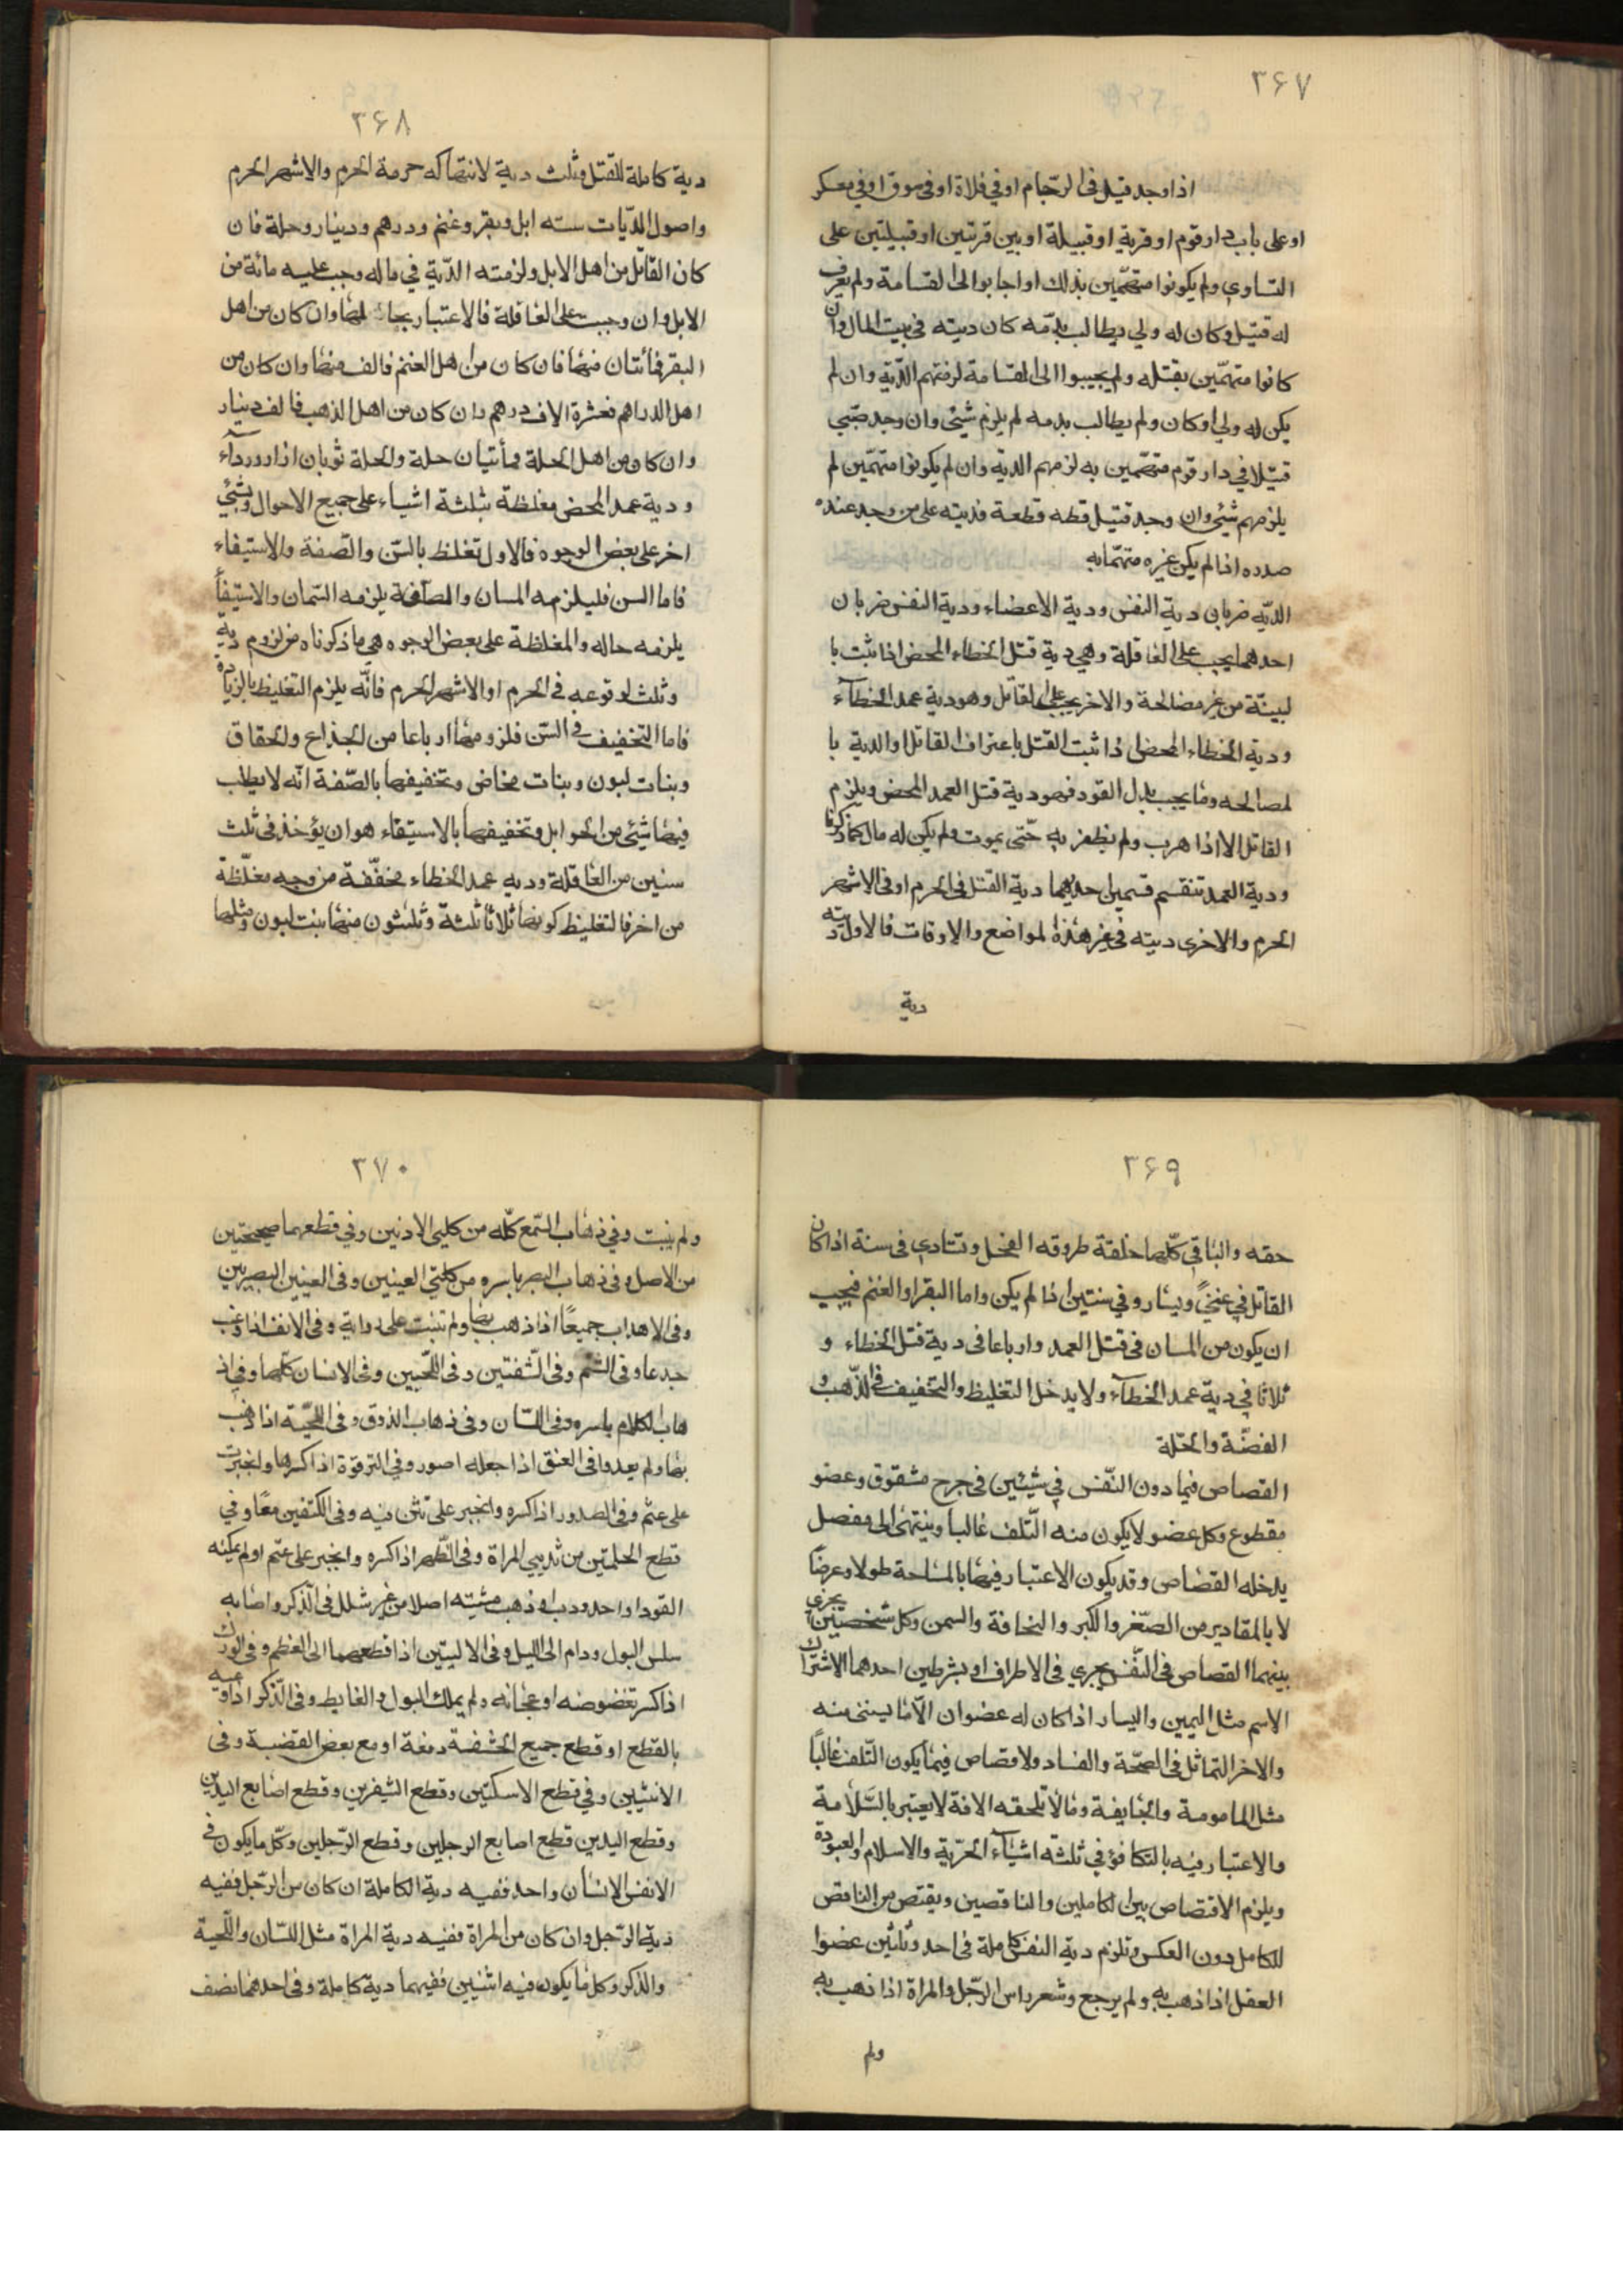 ۳۶۷
اذا وجد قتيل فى الزحام او في فلاة او فى سوق او في معسكر
او على باب دار قوم او قرية او قبيلة او بين قريتين او قبيلتين على
التساوي ولم يكونوا متهمّين بذلك او اجابوا الى القسامة ولم يعرف
له قتيل وكان له ولي يطالب بدمّه كان ديته فى بيت المال وان
كانوا متهمّين بقتله ولم يجيبوا الى القسامة لزمتهم الدّية وان لم
يكن له ولي او كان ولم يطالب بدمه لم يلزم شيئ وان وجد صبّي
قتيلا في دار قوم متهمّين به لزمهم الدية وان لم يكونوا متهمّين لم
يلزمهم شيئ وان وجد قتيل قطعه قطعة فديته على من وجد عنده
صدره اذا لم يكن غيره متهمّا به
الدّيه ضربان دية النفس ودية الاعضاء ودية النفس ضربان
احدهما يجب على العاقلة وهي دية قتل الخطاء المحض اذا ثبت با
لبينّة من غير مصالحة والاخر يجب على القاتل وهو دية عمد الخطآء
ودية الخطاء المحض اذا ثبت القتل باعتراف القاتل او الدية با
لمصالحه وما يجب بدل القود فهو دية قتل العمد المحض ويلزم
القاتل الا اذا هرب ولم يظفر به حتّى يموت ولم يكن له مال كما ذكرنا
ودية العمد تنقسم قسمين احديهما دية القتل فى الحرم او فى الاشهر
الحرم والاخرى ديته فى غير هذه المواضع والاوقات فالاول ديته
دية
۳۶۸
دية كاملة للقتل وثلث دية لانتهاكه حرمة الحرم والاشهر الحرم
واصول الدّيات سته ابل وبقر وغنم ودرهم ودينار وحلة فان
كان القاتل من اهل الابل ولزمته الدّية في ماله وجب عليه مائة من
الابل وان وجبت على العاقلة فالاعتبار بحال لها وان كان من اهل
البقر فمائتان منها فان كان من اهل الغنم فالف منها وان كان من
اهل الدراهم فعشرة الاف درهم وان كان من اهل الذهب فالف دينار
وان كان من اهل الحلة فمأتيان حلة والحلة ثوبان ازار ورداء
ودية عمد المحض مغلظة بثلثة اشياء على جميع الاحوال وبشيئ
اخر على بعض الوجوه فالاول تغلظ بالسّن والصّفة والاستيفاء
فاما السن فليلزمه المسان والصآفة يلزمه السّمان والاستيفأ
يلزمه حاله والمغلظة على بعض الوجوه هي ما ذكرناه من لزوم دية
وثلث لوقوعه فى الحرم او الاشهر الحرم فانّه يلزم التغليظ بالزيادة
فاما التخفيف فى السّن فلزومها ارباعا من الجذاع والحقاق
وبنات لبون وبنات مخاض وتخفيفها بالصّفة انّه لا يطلب
فيها شيئ من الحوابل وتخفيفها بالاستيفاء هو ان يؤخذ فى ثلث
سنين من العاقلة وديه عمد الخطاء مخفّفة من وجه مغلّظة
من اخر فالتغليظ كونها ثلاثا ثلثة وثلثون منها بنت لبون ومثلها
۳۶۹
حقه والباقي كلّها خلقة طروقه الفحل وتتادي فى سنة اذا كان
القاتل في غنيً ويسار وفي سنتين اذا لم يكن واما البقر او الغنم فيجب
ان يكون من المسان فى قتل العمد وارباعا فى دية قتل الخطاء و
ثلاثا في دية عمد الخطآء ولا يدخل التغليظ والتخفيف فى الذّهب و
الفضّة والحلّة
القصاص فيما دون النّفس في شيئين فى جرح مشقوق وعضو
مقطوع وكل عضو لا يكون منه التّلف غالبا وينتهى الى مفصل
يدخله القصاص وقد يكون الاعتبار فيها بالمساحة طولا وعرضًا
لا بالمقادير من الصّغر والكبر والنحافة والسمن وكل شخصيّن يجرى
بينهما القصاص فى النّفس يجري فى الاطراف او بشرطين احدهما الاشتراك
الاسم مثل اليمين واليسار اذا كان له عضوان الّا ما يستثنى منه
والاخر التماثل فى الصحّة والفساد ولا قصاص فيما يكون التّلف غالبًا
مثل المامومة والجايفة وما لا تلحقه الافة لا يعتبر بالسّلامة
والاعتبار فيه بالتكافؤ في ثلثه اشيآء الحريّة والاسلام والعبودة
ويلزم الاقتصاص بين الكاملين والناقصين ويقتص من الناقص
للكامل دون العكس وتلزم دية النفس كاملة فى احد وثلثين عضوا
العقل اذا ذهب به ولم يرجع وشعر راس الرّجل والمراة اذا ذهب به
ولم
۳۷۰
ولم ينبت وفي ذهاب السّمع كلّه من كليى الاذنين وفي قطعهما صحيحتين
من الاصل وفى ذهاب البصر باسره من كلتي العينين وفى العينين البصيرتين
وفى الاهداب جميعًا اذا ذهب بها ولم تنبت على رواية وفى الانف اذا
جدعا وفى الشم وفى الشّفتين وفى اللّحيين وفى الاسنان كلّها وفي اذ
هاب الكلام باسره وفى اللسّان وفى ذهاب الذوق وفى اللحيّة اذا ذهب
بها ولم يعد وافى العنق اذا جعله اصور وفي الترقوة اذا كسرها وانجبرت
على عثم وفى الصدور اذا كسره وانجبر على تثن فيه وفى الكتفين معًا وفي
قطع الحلمتّين من ثديي المراة وفى الظّهر اذا كسره وانجبر على عثم اولم يمكنه
القود او احدودب او ذهب مشيته اصلا من غير شلل فى الذّكر واصابه
سلس البول ودام الى الليل وفى الاليتين اذا قطعهما الى العظم وفى الورك
اذا كسر تغضوضه او عجانه ولم يملك البول والغايط وفى الذّكر اذا
بالقطع او قطع جميع الحشفة دفعة او مع بعض القضبة وفى
الانثيين وفي قطع الاسكتين وقطع الشفرين وقطع اصابع اليدين
وقطع اليدين قطع اصابع الرجلين وقطع الرّجلين وكلّ ما يكون فى
الانفس الانسان واحد ففيه دية الكاملة ان كان من الرّجل ففيه
دية الرّجل وان كان من المراة ففيه دية المراة مثل اللسّان واللّحية
والذكر وكل ما يكون فيه اثنيين ففيهما دية كاملة وفى احدهما نصف